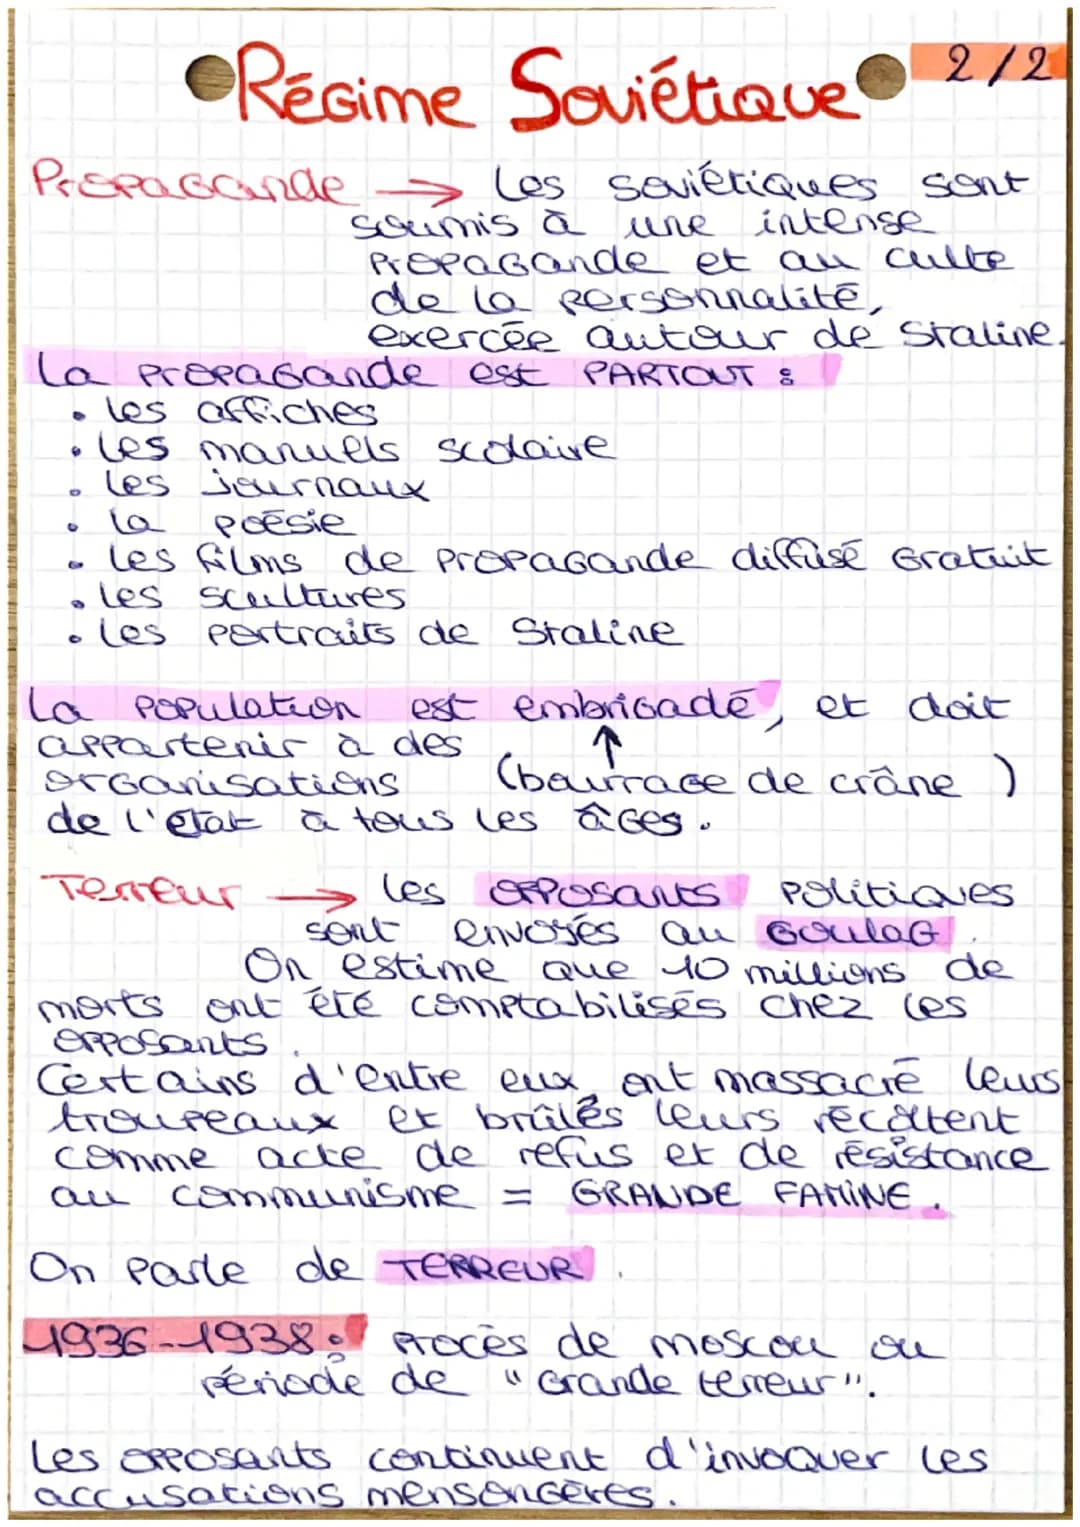 Régime Soviétique
2/2
Propagande → Les soviétiques sont
soumis à une intense
propagande et au culte
de la personnalité,
exercée autour de Staline.
La propagande est PARTOUT :
• les affiches
• les manuels scolaire
• les journaux
• la poésie
• les films de propagande diffusé gratuit
• les scultures
• les portraits de Staline
La population est embrigadé, et doit
appartenir à des ↑
organisations (bourrage de crâne)
de l'état à tous les âges.
Terreur → les opposants politiques
sont envoyés au GOULAG.
On estime que 10 millions de
morts ont été comptabilisés chez les
opposants.
Certains d'entre eux ont massacré leurs
troupeaux et brûlés leurs récoltent
comme acte de refus et de résistance
au communisme = GRANDE FAMINE.
On parle de TERREUR.
1936-1938 : Procès de moscou ou
période de "Grande terreur".
Les opposants continuent d'invoquer les
accusations mensongères.